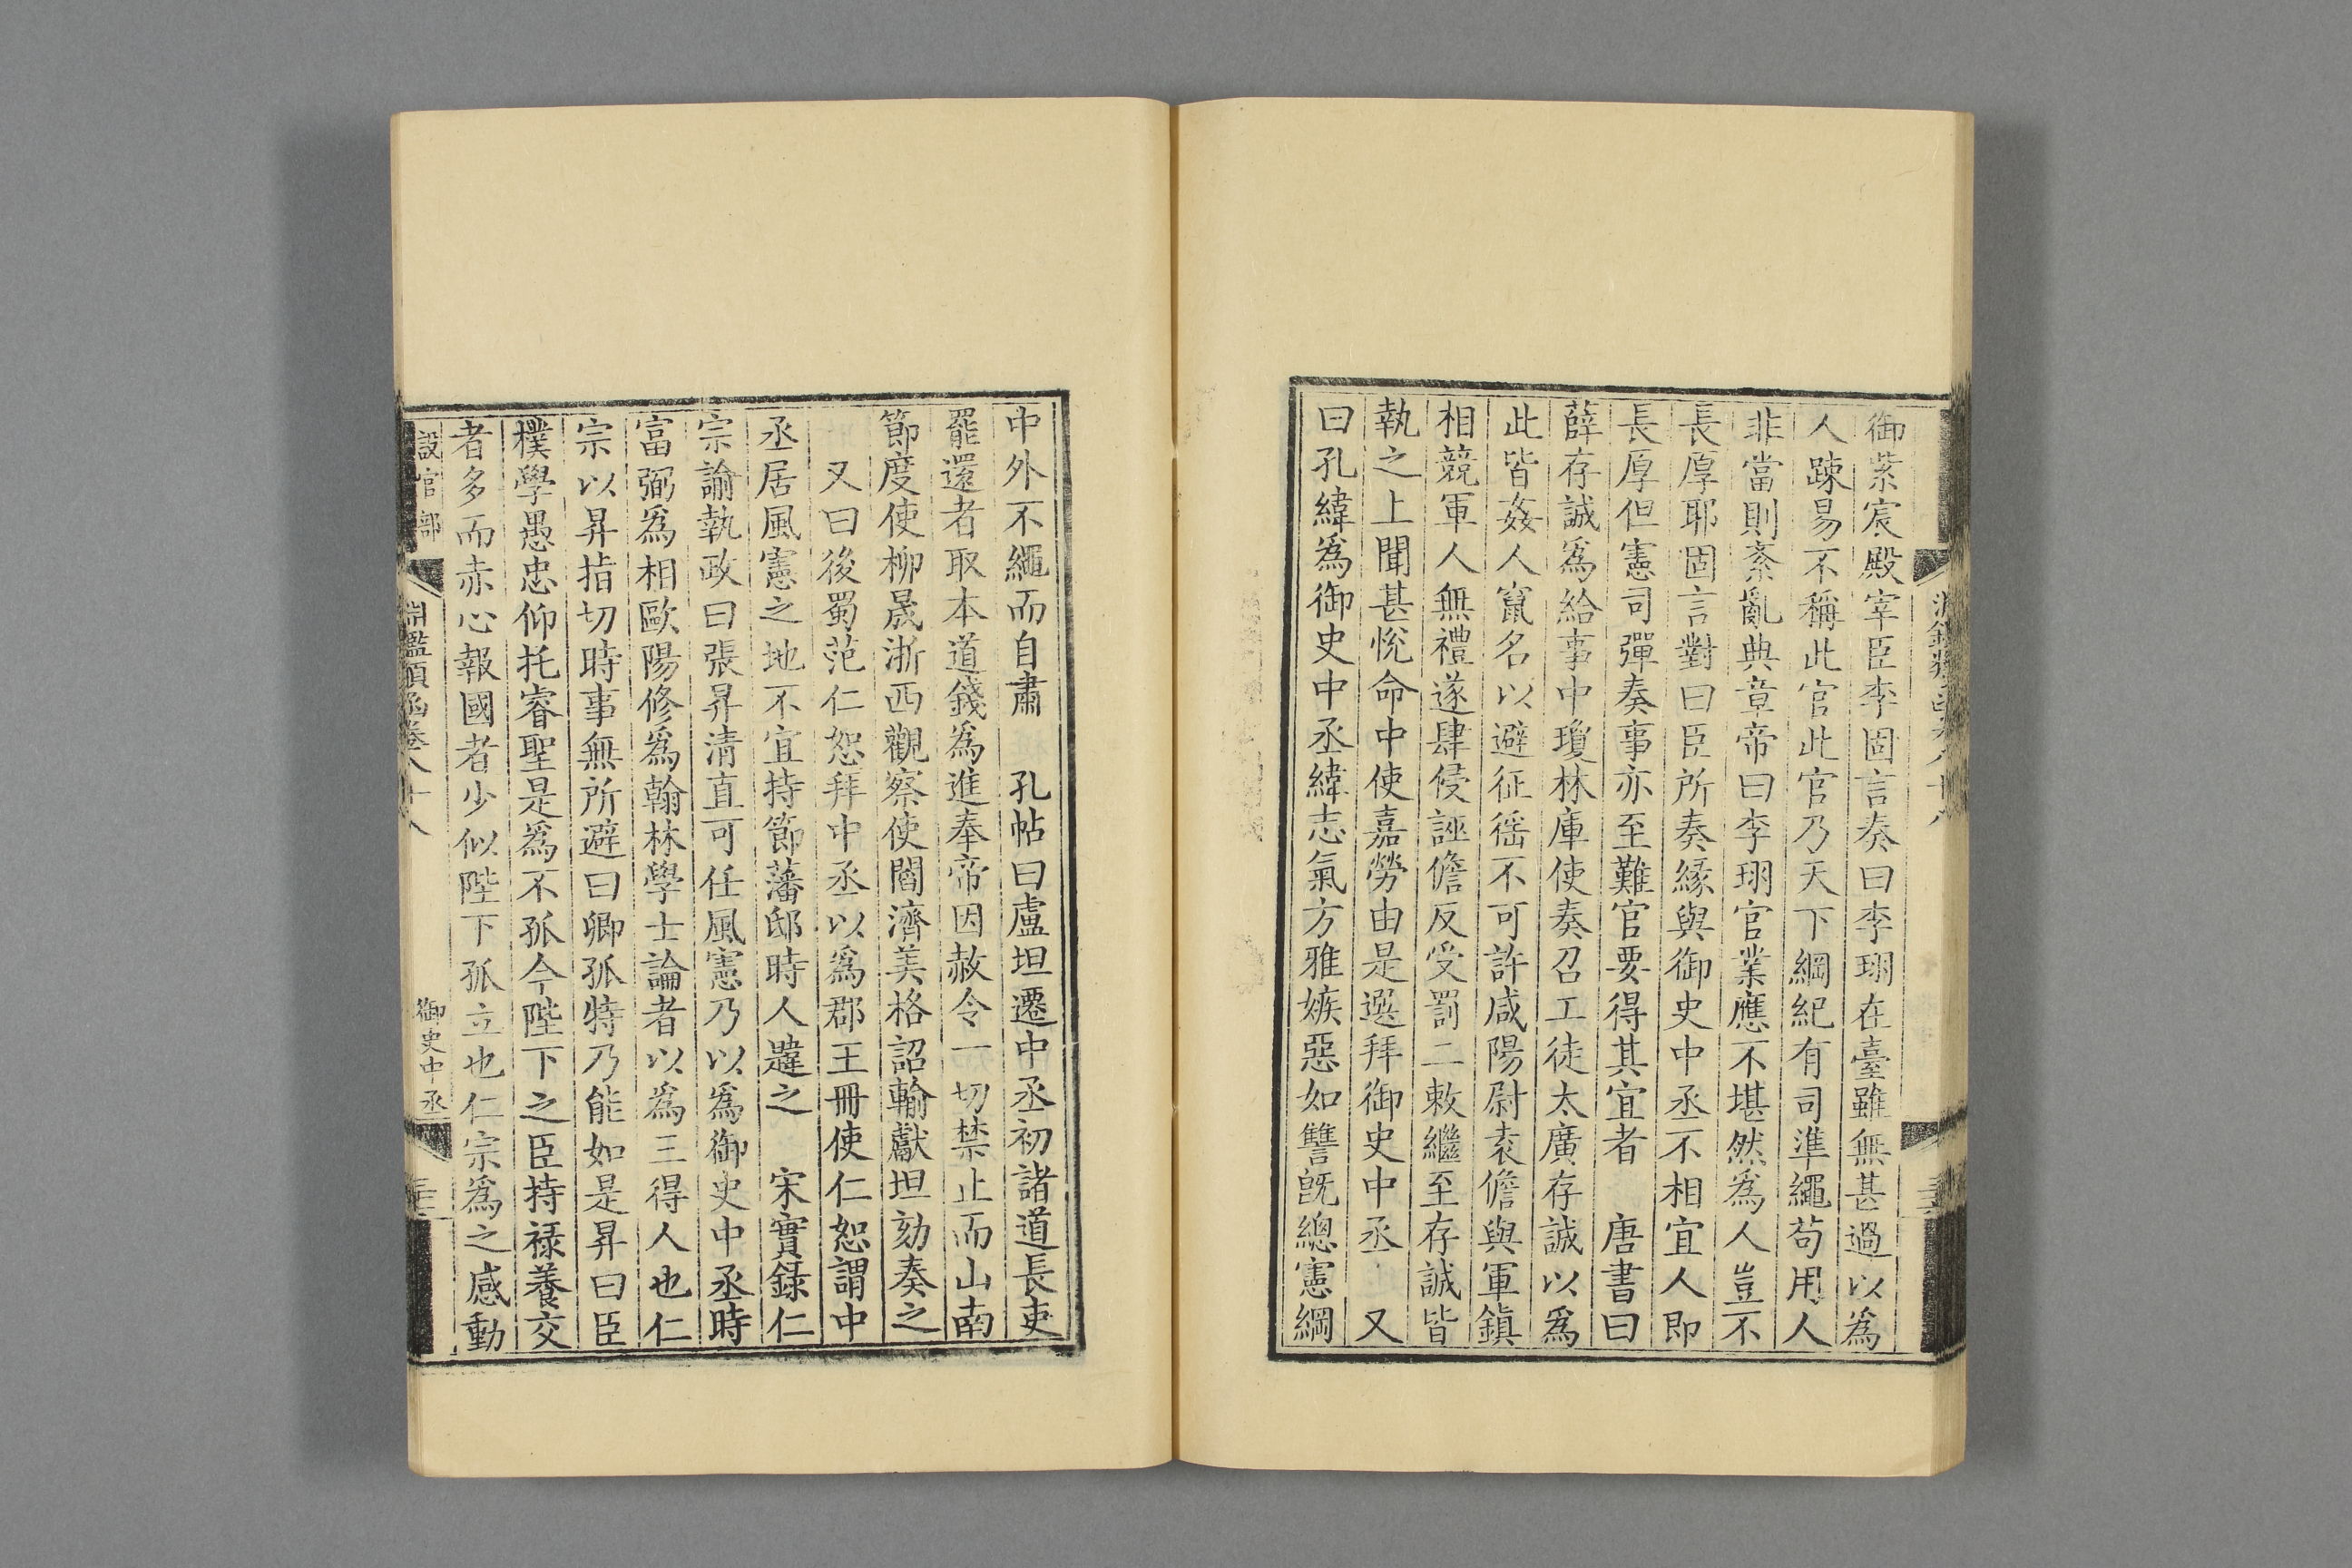 御紫宸殿宰臣李固言奏曰李珝在臺雖無甚過以為
人踈易不稱此官此官乃天下綱紀有司準繩苟用人
非當則紊亂典章帝曰李珝官業應不堪然為人豈不
長厚耶固言對曰臣所奏緣與御史中丞不相宜人即
長厚但憲司彈奏事亦至難官要得其宜者　唐書曰
薛存誠爲給事中瓊林庫使奏召工徒太廣存誠以爲
此皆姦人竄名以避征徭不可許咸陽尉袁儋與軍鎮
相競軍人無禮遂肆侵誣儋反受罰二敕繼至存誠皆
執之上聞甚悅命中使嘉勞由是選拜御史中丞　又
曰孔緯爲御史中丞緯志氣方雅嫉惡如讐旣總憲綱
中外不繩而自肅　孔帖曰盧坦遷中丞初諸道長吏
罷還者取本道錢為進奉帝因赦令一切禁止而山南
節度使柳晟浙西觀察使閻濟美格詔輸獻坦劾奏之
又曰後蜀范仁恕拜中丞以爲郡王冊使仁恕謂中
丞居風憲之地不宜持節藩邸時人韙之　宋實錄仁
宗諭執政曰張昇清直可任風憲乃以爲御史中丞時
富弼爲相歐陽修爲翰林學士論者以爲三得人也仁
宗以昇指切時事無所避曰卿孤特乃能如是昇曰臣
樸學愚忠仰托睿聖是爲不孤今陛下之臣持祿養交
者多而赤心報國者少似陛下孤立也仁宗爲之感動
設官部
淵鑑類函卷八十八
御史中丞